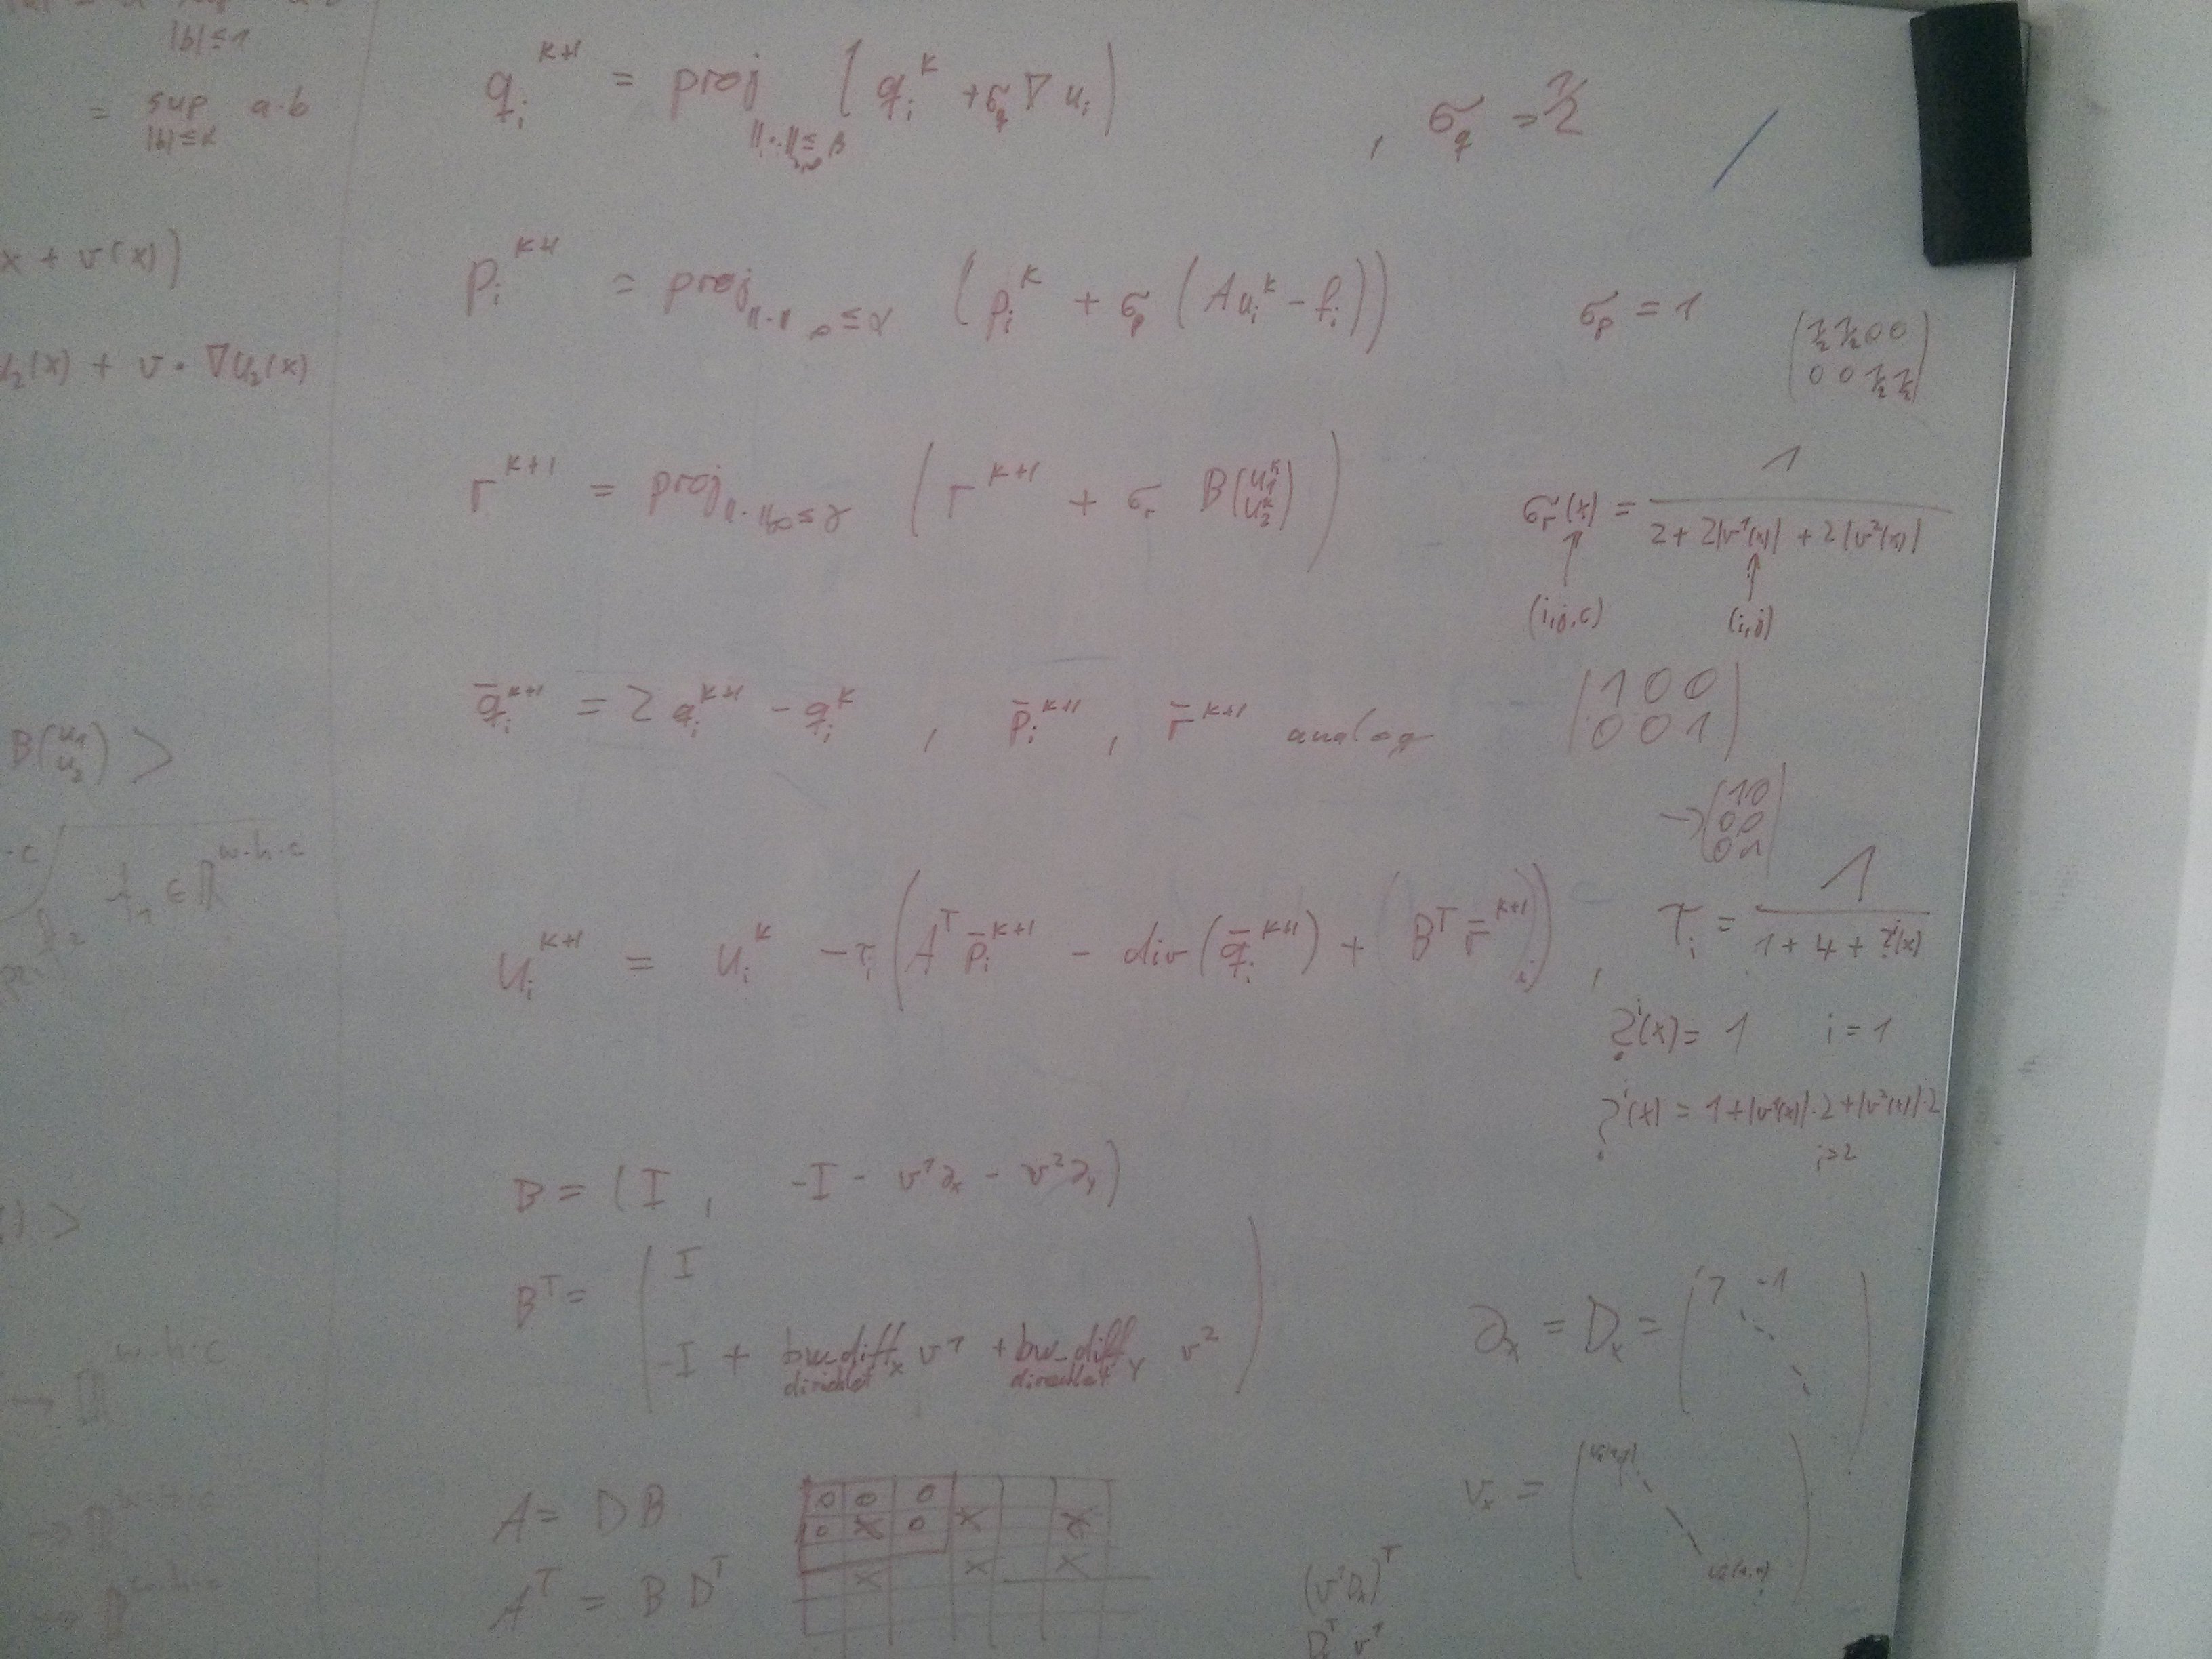 |b|≤1
= sup a·b
|b|≤α
x + v(x))
u₂(x) + v · ∇u₂(x)
B(u₁ u₂) >
f₁ ∈ ℝ^w·h·c
→ ℝ^w·h·c
q_i^k+1 = proj_||·||≤β (q_i^k + σ_q ∇ u_i) , σ_q = 1/2
p_i^k+1 = proj_||·||∞≤α (p_i^k + σ_p (A u_i^k - f_i)) σ_p = 1
(½ ½ 0 0
0 0 ½ ½)
r^k+1 = proj_||·||∞≤γ (r^k+1 + σ_r B(u₁^k u₂^k)) σ_r(x) = 1 / (2 + 2|v¹(x)| + 2|v²(x)|)
(i,j,c) (i,j)
q̄_i^k+1 = 2 q_i^k+1 - q_i^k , p̄_i^k+1 , r̄^k+1 analog
(1 0 0
0 0 1)
→ (1 0
0 0
0 1)
u_i^k+1 = u_i^k - τ_i (A^T p̄_i^k+1 - div(q̄_i^k+1) + (B^T r̄^k+1)_i) , τ_i = 1 / (1 + 4 + ?^i(x))
?^i(x) = 1 i = 1
?^i(x) = 1 + |v¹(x)|·2 + |v²(x)|·2
i=2
B = (I , -I - v¹∂x - v²∂y)
B^T = (I
-I + bw_diff_x v¹ + bw_diff_y v²)
dirichlet dirichlet
∂x = D_x = (1 -1)
v_x =
A = D B
A^T = B D^T
0 0 0
0 X 0 X X
X X X
(v¹D_x)^T
D_x^T v¹